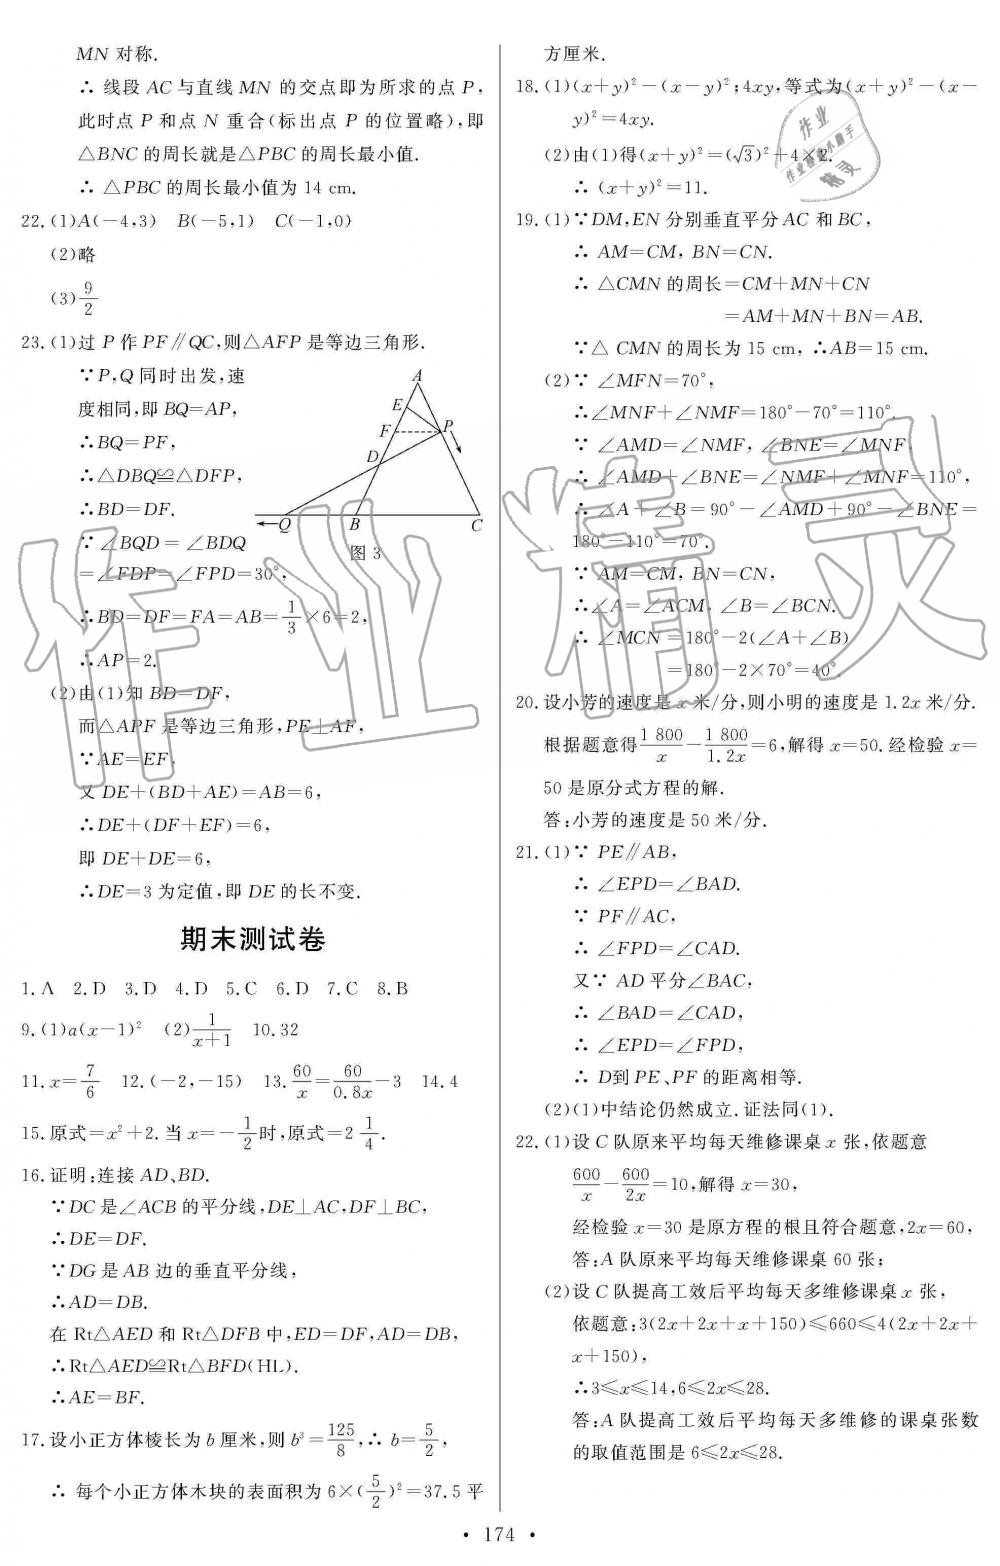 MN 对称.
∴ 线段 AC 与直线 MN 的交点即为所求的点 P,
此时点 P 和点 N 重合(标出点 P 的位置略),即
△BNC 的周长就是△PBC 的周长最小值.
∴ △PBC 的周长最小值为 14 cm.
22.(1)A(-4,3) B(-5,1) C(-1,0)
(2)略
(3)9/2
23.(1)过 P 作 PF∥QC,则△AFP 是等边三角形.
∵P,Q 同时出发,速
度相同,即 BQ=AP,
∴BQ=PF,
∴△DBQ≌△DFP,
∴BD=DF.
∵∠BQD=∠BDQ
=∠FDP=∠FPD=30°,
∴BD=DF=FA=AB=1/3×6=2,
∴AP=2.
A
E
F
P
D
Q
B
C
图 3
(2)由(1)知 BD=DF,
而△APF 是等边三角形,PE⊥AF,
∵AE=EF,
又 DE+(BD+AE)=AB=6,
∴DE+(DF+EF)=6,
即 DE+DE=6,
∴DE=3 为定值,即 DE 的长不变.
期末测试卷
1.A 2.D 3.D 4.D 5.C 6.D 7.C 8.B
9.(1)a(x-1)² (2)1/(x+1) 10.32
11.x=7/6 12.(-2,-15) 13.60/x=60/0.8x-3 14.4
15.原式=x²+2.当 x=-1/2时,原式=2 1/4.
16.证明:连接 AD、BD.
∵DC 是∠ACB 的平分线,DE⊥AC,DF⊥BC,
∴DE=DF.
∵DG 是 AB 边的垂直平分线,
∴AD=DB.
在 Rt△AED 和 Rt△DFB 中,ED=DF,AD=DB,
∴Rt△AED≌Rt△BFD(HL).
∴AE=BF.
17.设小正方体棱长为 b 厘米,则 b³=125/8,∴ b=5/2,
∴ 每个小正方体木块的表面积为 6×(5/2)²=37.5 平
方厘米.
18.(1)(x+y)²-(x-y)²;4xy,等式为(x+y)²-(x-
y)²=4xy.
(2)由(1)得(x+y)²=(√3)²+4×2.
∴ (x+y)²=11.
19.(1)∵DM,EN 分别垂直平分 AC 和 BC,
∴ AM=CM, BN=CN.
∴ △CMN 的周长=CM+MN+CN
=AM+MN+BN=AB.
∵△ CMN 的周长为 15 cm, ∴AB=15 cm.
(2)∵ ∠MFN=70°,
∴∠MNF+∠NMF=180°-70°=110°.
∵ ∠AMD=∠NMF, ∠BNE=∠MNF,
∴ ∠AMD+∠BNE=∠NMF+∠MNF=110°,
∴ ∠A+∠B=90°-∠AMD+90°-∠BNE=
180°-110°=70°.
∵ AM=CM, BN=CN,
∴∠A=∠ACM, ∠B=∠BCN.
∴ ∠MCN=180°-2(∠A+∠B)
=180°-2×70°=40°.
20.设小芳的速度是 x 米/分,则小明的速度是 1.2x 米/分.
根据题意得1 800/x-1 800/1.2x=6,解得 x=50.经检验 x=
50 是原分式方程的解.
答:小芳的速度是 50 米/分.
21.(1)∵ PE∥AB,
∴ ∠EPD=∠BAD.
∵ PF∥AC,
∴ ∠FPD=∠CAD.
又∵ AD 平分∠BAC,
∴ ∠BAD=∠CAD,
∴ ∠EPD=∠FPD,
∴ D到 PE、PF 的距离相等.
(2)(1)中结论仍然成立.证法同(1).
22.(1)设 C 队原来平均每天维修课桌 x 张,依题意
600/x-600/2x=10,解得 x=30,
经检验 x=30 是原方程的根且符合题意,2x=60,
答:A 队原来平均每天维修课桌 60 张;
(2)设 C 队提高工效后平均每天多维修课桌 x 张,
依题意:3(2x+2x+x+150)≤660≤4(2x+2x+
x+150),
∴3≤x≤14,6≤2x≤28.
答:A 队提高工效后平均每天多维修的课桌张数
的取值范围是 6≤2x≤28.
• 174 •
作业精灵
作业
作业检查小助手
精灵